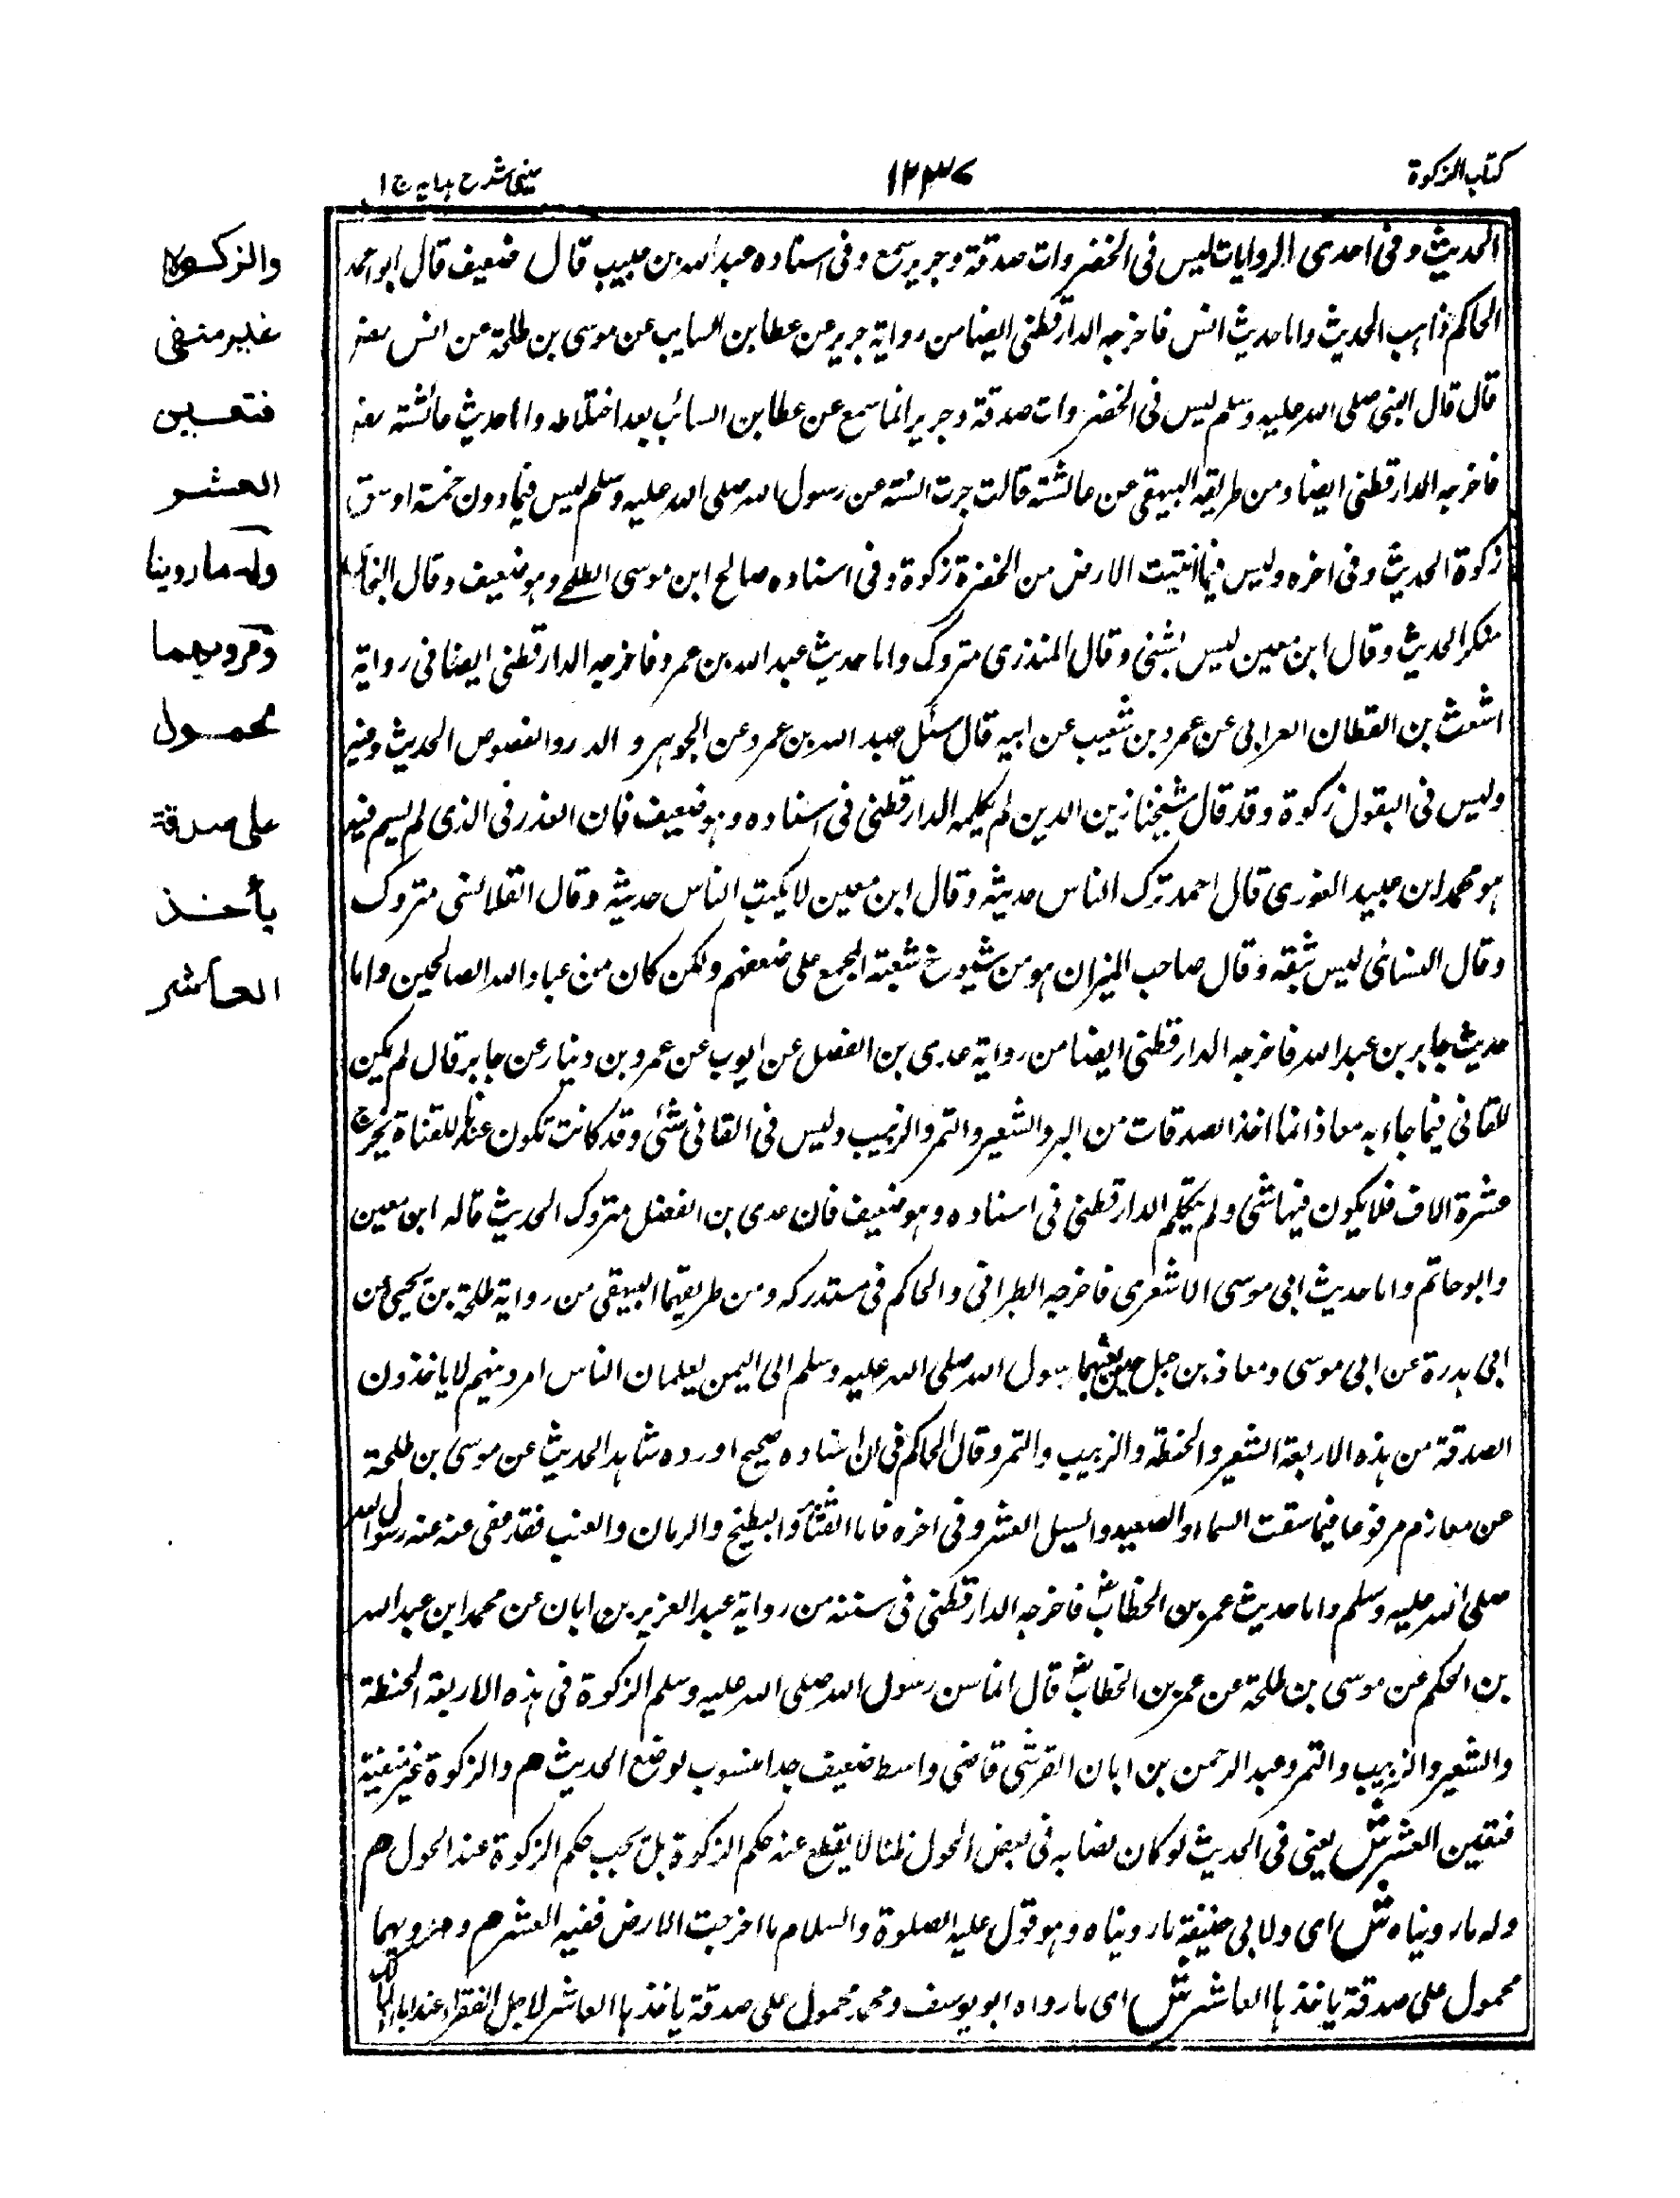 كتاب الزكوة
١٢٣٧
عيني شرح هدايه ج ١
الحديث وفى احدى الروايات ليس فى الخضروات صدقة وجرير سمع وفى اسناده عبد الله بن حبيب قال ضعيف قال ابو احمد
الحاكم ذاهب الحديث واما حديث انس فاخرجه الدارقطنى ايضا من رواية جرير عن عطا بن السايب عن موسى بن طلحة عن انس رضه
قال قال النبى صلى الله عليه وسلم ليس فى الخضروات صدقة وجرير انما سمع عن عطا بن السائب بعد اختلاطه واما حديث عائشة رضه
فاخرجه الدارقطنى ايضا ومن طريقه البيهقى عن عائشة قالت جرت السنة عن رسول الله صلى الله عليه وسلم ليس فيما دون خمسة اوسق
زكوة الحديث وفى اخره وليس فيما انبتت الارض من الخضرة زكوة وفى اسناده صالح ابن موسى الطلحى وهو ضعيف وقال البخارى
منكر الحديث وقال ابن معين ليس بشئ وقال المنذرى متروك واما حديث عبد الله بن عمرو فاخرجه الدارقطنى ايضا فى رواية
اشعث بن القطان العرابى عن عمرو بن شعيب عن ابيه قال سئل عبد الله بن عمرو عن الجوهر و الدر والفصوص الحديث وفيه
وليس فى البقول زكوة وقد قال شيخنا زين الدين لم يكلمه الدارقطنى فى اسناده وهو ضعيف فان العذر فى الذى لم يسم فيه
هو محمد ابن عبيد العزرى قال احمد ترك الناس حديثه وقال ابن معين لا يكتب الناس حديثه وقال الفلاسى متروك
وقال النسائى ليس بثقه وقال صاحب الميزان هو من شيوخ شعبة المجمع على ضعفهم ولكن كان من عباد الله الصالحين واما
حديث جابر بن عبد الله فاخرجه الدارقطنى ايضا من رواية عدى بن الفضل عن ايوب عن عمرو بن دينار عن جابر قال لم يكن
للقانى فيما جاء به معاذ انما اخذ الصدقات من البر والشعير والتمر والزبيب وليس فى القانى شئ وقد كانت تكون عندنا للقناة تخرج
عشرة الاف فلا يكون فيها شئ ولم يتكلم الدارقطنى فى اسناده وهو ضعيف فان عدى بن الفضل متروك الحديث قاله ابن معين
وابو حاتم واما حديث ابى موسى الاشعرى فاخرجه الطبرانى والحاكم فى مستدركه ومن طريقهما البيهقى من رواية طلحة بن يحيى عن
ابى بدرة عن ابى موسى ومعاذ بن جبل حين بعثهما رسول الله صلى الله عليه وسلم الى اليمن يعلمان الناس امر دينهم لا ياخذون
الصدقة من هذه الاربعة الشعير والحنطة والزبيب والتمر وقال الحاكم فى ان اسناده صحيح اورده شاهد الحديث عن موسى بن طلحة
عن معاذ مرفوعا فيما سقت السماء والصعيد والسيل العشر وفى اخره فاما القثاء والبطيخ والرمان والعنب فقد عفى عنه عنه رسول الله
صلى الله عليه وسلم واما حديث عمر بن الخطاب فاخرجه الدارقطنى فى سننه من رواية عبد العزيز بن ابان عن محمد ابن عبد الله
بن الحكم عن موسى بن طلحة عن عمر بن الخطاب قال انما سن رسول الله صلى الله عليه وسلم الزكوة فى هذه الاربعة الحنطة
والشعير والزبيب والتمر وعبد الرحمن بن ابان القرشى قاضى واسط ضعيف جدا منسوب لوضع الحديث هم والزكوة غير منفية
فتعين العشر ش يعنى فى الحديث لو كان نصابه فى بعض الحول قلنا لا يقطع عنه حكم الزكوة بل يجب حكم الزكوة عند الحول هم
وله ما رويناه ش اى ولابى حنيفة ما رويناه وهو قول عليه الصلوة والسلام ما اخرجت الارض ففيه العشر هم ومرويهما
محمول على صدقة ياخذها العاشر ش اى ما رواه ابو يوسف ومحمد محمول على صدقة ياخذها العاشر لاجل الفقراء عند
والزكوة
غير منفى
فتعين
العشر
وله ما روينا
ومرويهما
محمول
على صدقة
يأخذ
العاشر